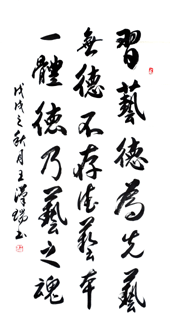 習藝德為先藝
無德不存德藝本
一體德乃藝之魂
戊戌之秋月王漢瑞書